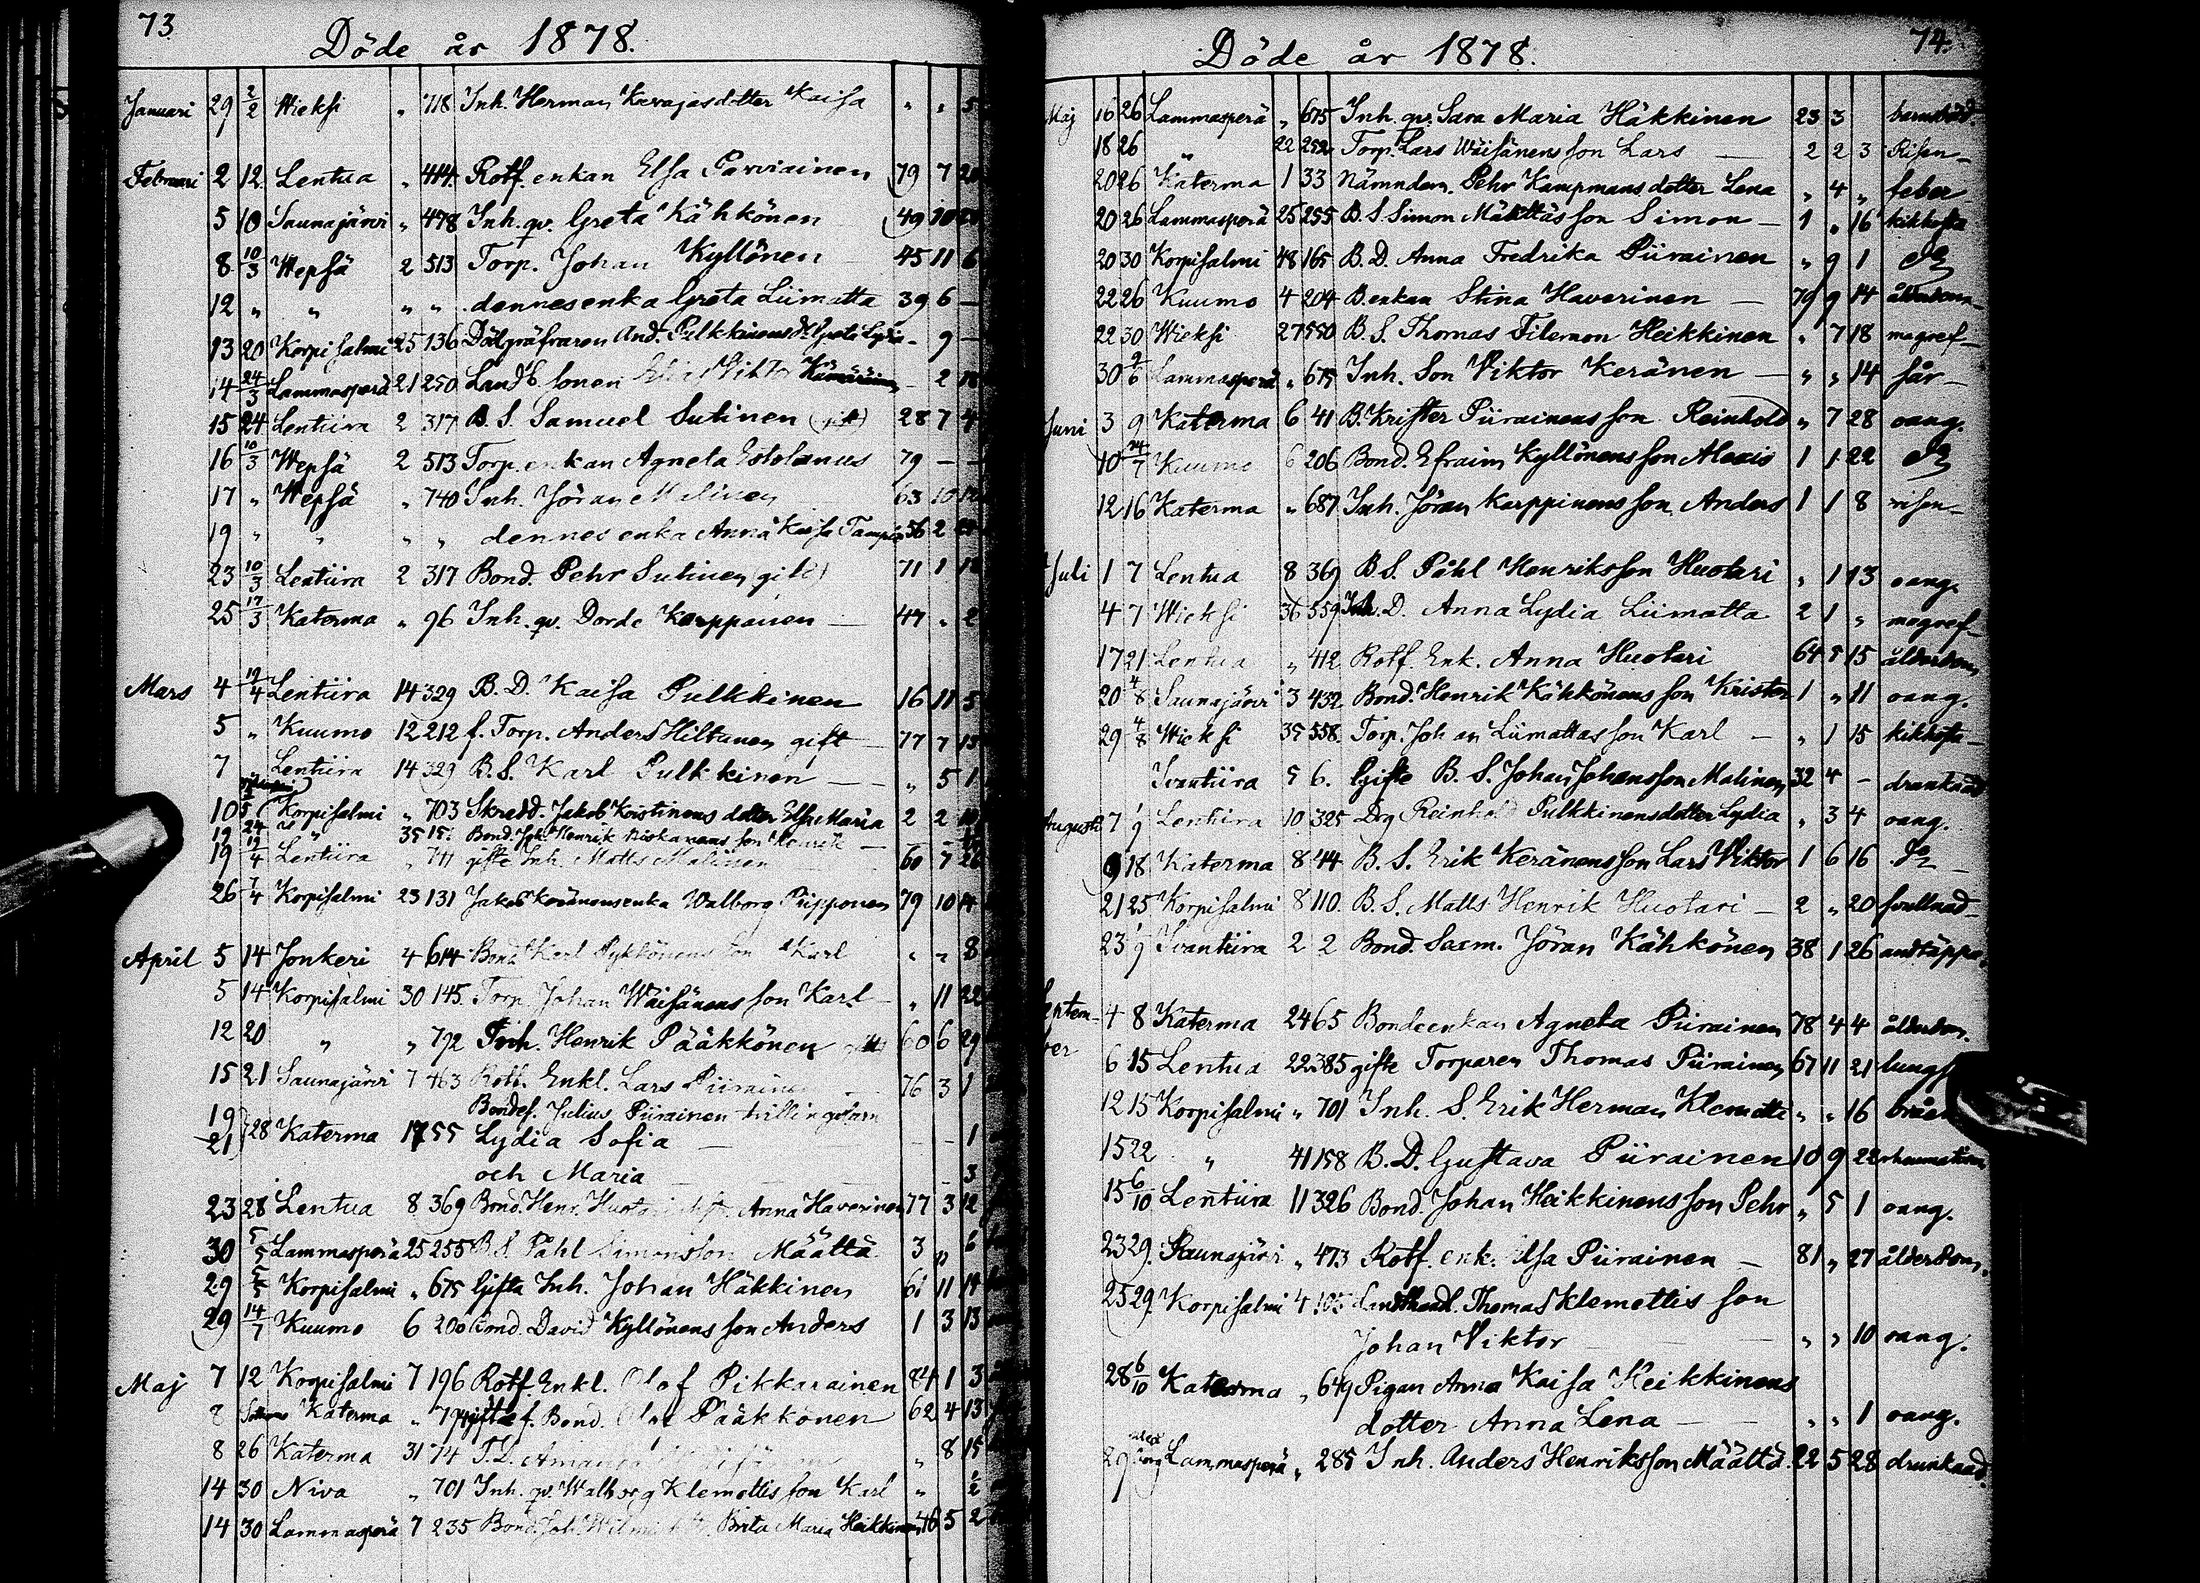 73
Döde år 1878.
Januari 29 2/2 Wieksi " 718 Inh. Herman Kovajas dotter Kaisa " " 5
Februari 2 12 Lentua " 414 Rotf. enkan Elsa Parviainen 79 7
5 10 Saunajärvi " 478 Inh. qv. Greta Kähkönen 49 10
8 10/3 Wepsä 2 513 Torp. Johan Kyllönen 45 11 6
12 " " " " dennes enka Greta Liimatta 39 6 —
13 20 Korpisalmi 25 136 And. Pulkkinens Greta Lydia - 9 —
14 24/3 Lammasperä 21 250 Landb. sonen - 2
15 24 Lentiira 2 317 B. S. Samuel Sutinen (gift) 28 7 4
16 10/3 Wepsä 2 513 Torp. enkan Agneta 79 — —
17 " Wepsä " 740 Inh. Jöran Malinen 63 10
19 " " " " dennes enka Anna Kaisa 56 2
23 10/3 Lentiira 2 317 Bond. Pehr Sutinen (gift) 71 1
25 17/3 Katerma " 96 Inh. qv. Dorde Karppanen — 47 " 2
Mars 4 Lentiira 14 329 B. D. Kaisa Pulkkinen 16 11 5
5 " Kuumo 12 212 f. Torp. Anders Hiltunen gift — 77 7 15
7 Lentiira 14 329 B. S. Karl Pulkkinen — " 5 1
10 Korpisalmi " 703 Skrädd. Jakob Kristinens dotter Elsa Maria 2 2
19 24 " 35 Bond. Joh. Henrik son Henrik —
19 Lentiira " 741 gifte Inh. Matts Malinen 60 7 26
26 7/4 Korpisalmi 23 131 Jakob Keränens enka Walborg Piipponen 79 10 14
April 5 14 Jonkeri 4 614 Bond Karl Pykkönens son Karl " " 8
5 14 Korpisalmi 30 145 Torp. Johan Wäisänens son Karl — " 11 22
12 20 " " 792 Inh. Henrik Pääkkönen 60 6 29
15 21 Saunajärvi 7 463 Rotf. Enkl. Lars Piirainen 76 3 1
Bondef. Julius Piirainen trillingebarn
19 21 } 28 Katerma 17 55 Lydia Sofia — — — 1
och Maria — — 3
23 28 Lentua 8 369 Bond. Henr. Huotari Anna Haverinen 77 3 12
30 5/5 Lammasperä 25 255 B. S. Påhl Simonsson Määttä 3 " 6
29 5/5 Korpisalmi " 675 Gifta Inh. Johan Häkkinen 61 11 14
29 14/7 Kuumo 6 200 Bond. David Kyllönens son Anders 1 3 13
Maj 7 12 Korpisalmi 7 196 Rotf. Enkl. Olof Pikkarainen 84 1 3
8 Katerma " 794 gifte f. Bond. Olof Pääkkönen 62 4 13
8 26 Katerma 31 74 T. D. Amanda " 8 15
14 30 Niva " 701 Inh. qv. Walborg Klemettis son Karl " 1/2
14 30 Lammasperä 7 235 Bond. Joh. Brita Maria Heikkinen 46 5 2
74.
Döde år 1878.
Maj 16 26 Lammasperä " 675 Inh. qv. Sara Maria Häkkinen 23 3 barnsäd.
18 26 " 22 252 Torp. Lars Wäisänens son Lars — 2 2 3 Risen—
20 26 Katerma 1 33 Nämndem. Pehr Kampmans dotter Lena " 4 " feber
20 26 Lammasperä 25 255 B. S. Simon Määttäs son Simon — 1 " 16 kikhosta
20 30 Korpisalmi 48 165 B. D. Anna Fredrika Piirainen " 9 1 do
22 26 Kuumo 4 204 B. enkan Stina Haverinen — 79 9 14 ålderdom
22 30 Wieksi 27 550 B. S. Thomas Filemon Heikkinen " 7 18 magref—
30 9/6 Lammasperä " 675 Inh. Son Viktor Keränen — " " 14 sår—
Juni 3 9 Katerma 6 41 B. Krister Piirainens son Reinhold " 7 28 oang.
10 14/7 Kuumo 6 206 Bond. Efraim Kyllönens son Alexis 1 1 22 do
12 16 Katerma " 687 Inh. Jöran Karppinens son Anders 1 1 8 risen—
Juli 1 7 Lentua 8 369 B. S. Påhl Henriksson Huotari " 1 13 oang.
4 7 Wieksi 36 559 Inh. D. Anna Lydia Liimatta 2 1 " magref—
17 21 Lentua " 412 Rotf. Enk. Anna Huotari 64 5 15 ålderdom
20 4/8 Saunajärvi 3 432 Bond. Henrik Kähkönens son Krister 1 " 11 oang.
29 4/8 Wieksi 35 558 Torp. Johan Liimattas son Karl — " 1 15 kikhosta—
Ivantiira 5 6. Gifte B. S. Johan Johansson Malinen 32 4 — drunknad
Augusti 7 1/9 Lentiira 10 325 Drg Reinhold Pulkkinens dotter Lydia " 3 4 oang.
9 18 Katerma 8 44 B. S. Erik Keränens son Lars Viktor 1 6 16 do
21 25 Korpisalmi 8 110. B. S. Matts Henrik Huotari — 2 " 20 svullnad—
23 1/9 Ivantiira 2 2 Bond. Saem. Jöran Kähkönen 38 1 26 andtäppa.
September 4 8 Katerma 24 65 Bondeenkan Agneta Piirainen 78 4 4 ålderdom.
6 15 Lentua 22 385 gifte Torparen Thomas Piirainen 67 11 21
12 15 Korpisalmi " 701 Inh. S. Erik Herman Klemetti " " 16
15 22 " 41 158 B. D. Gustava Piirainen 10 9 22 rheumatism
15 6/10 Lentiira 11 326 Bond. Johan Heikkinens son Pehr " 5 1 oang.
23 29. Saunajärvi " 473 Rotf. enk. Elsa Piirainen — 81 " 27 ålderdom.
25 29. Korpisalmi 4 105 Landthandl. Thomas Klemettis son
Johan Viktor — — " " 10 oang.
28 6/10 Katerma " 649 Pigan Anna Kaisa Heikkinens
dotter Anna Lena — — " " 1 oang.
29 Lammasperä " 285 Inh. Anders Henriksson Määttä 22 5 28 drunknad.